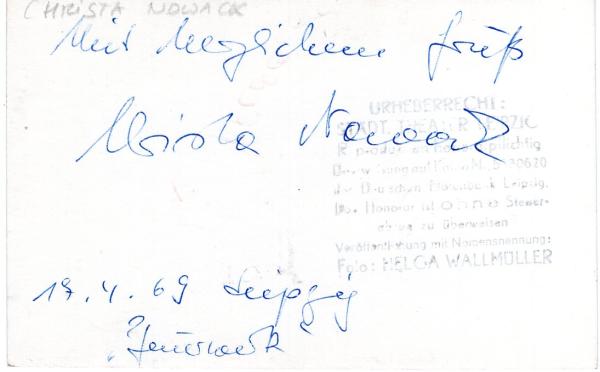 CHRISTA NOWACK
Mit herzlichem Gruß
Christa Nowack
URHEBERRECHT:
STÄDT. THEATER LEIPZIG
der Deutschen Notenbank Leipzig.
Das Honorar ist ohne Steuer-
abzug zu überweisen
Veröffentlichung mit Namensnennung:
Foto: HELGA WALLMÜLLER
17.4.69 Leipzig